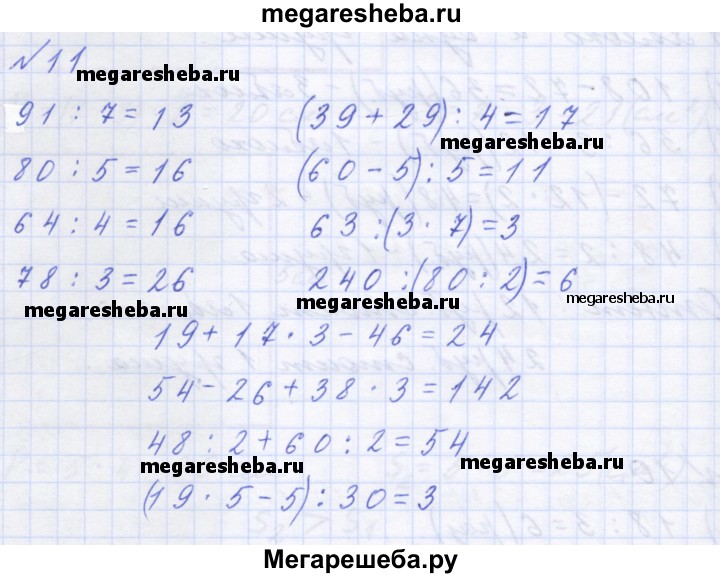 megaresheba.ru
№ 11
megaresheba.ru
91 : 7 = 13 (39 + 29) : 4 = 17
megaresheba.ru
80 : 5 = 16 (60 - 5) : 5 = 11
64 : 4 = 16 63 : (3 · 7) = 3
78 : 3 = 26 240 : (80 : 2) = 6
megaresheba.ru megaresheba.ru
19 + 17 · 3 - 46 = 24
54 - 26 + 38 · 3 = 142
48 : 2 + 60 : 2 = 54
megaresheba.ru megaresheba.ru
(19 · 5 - 5) : 30 = 3
Мегарешеба.ру